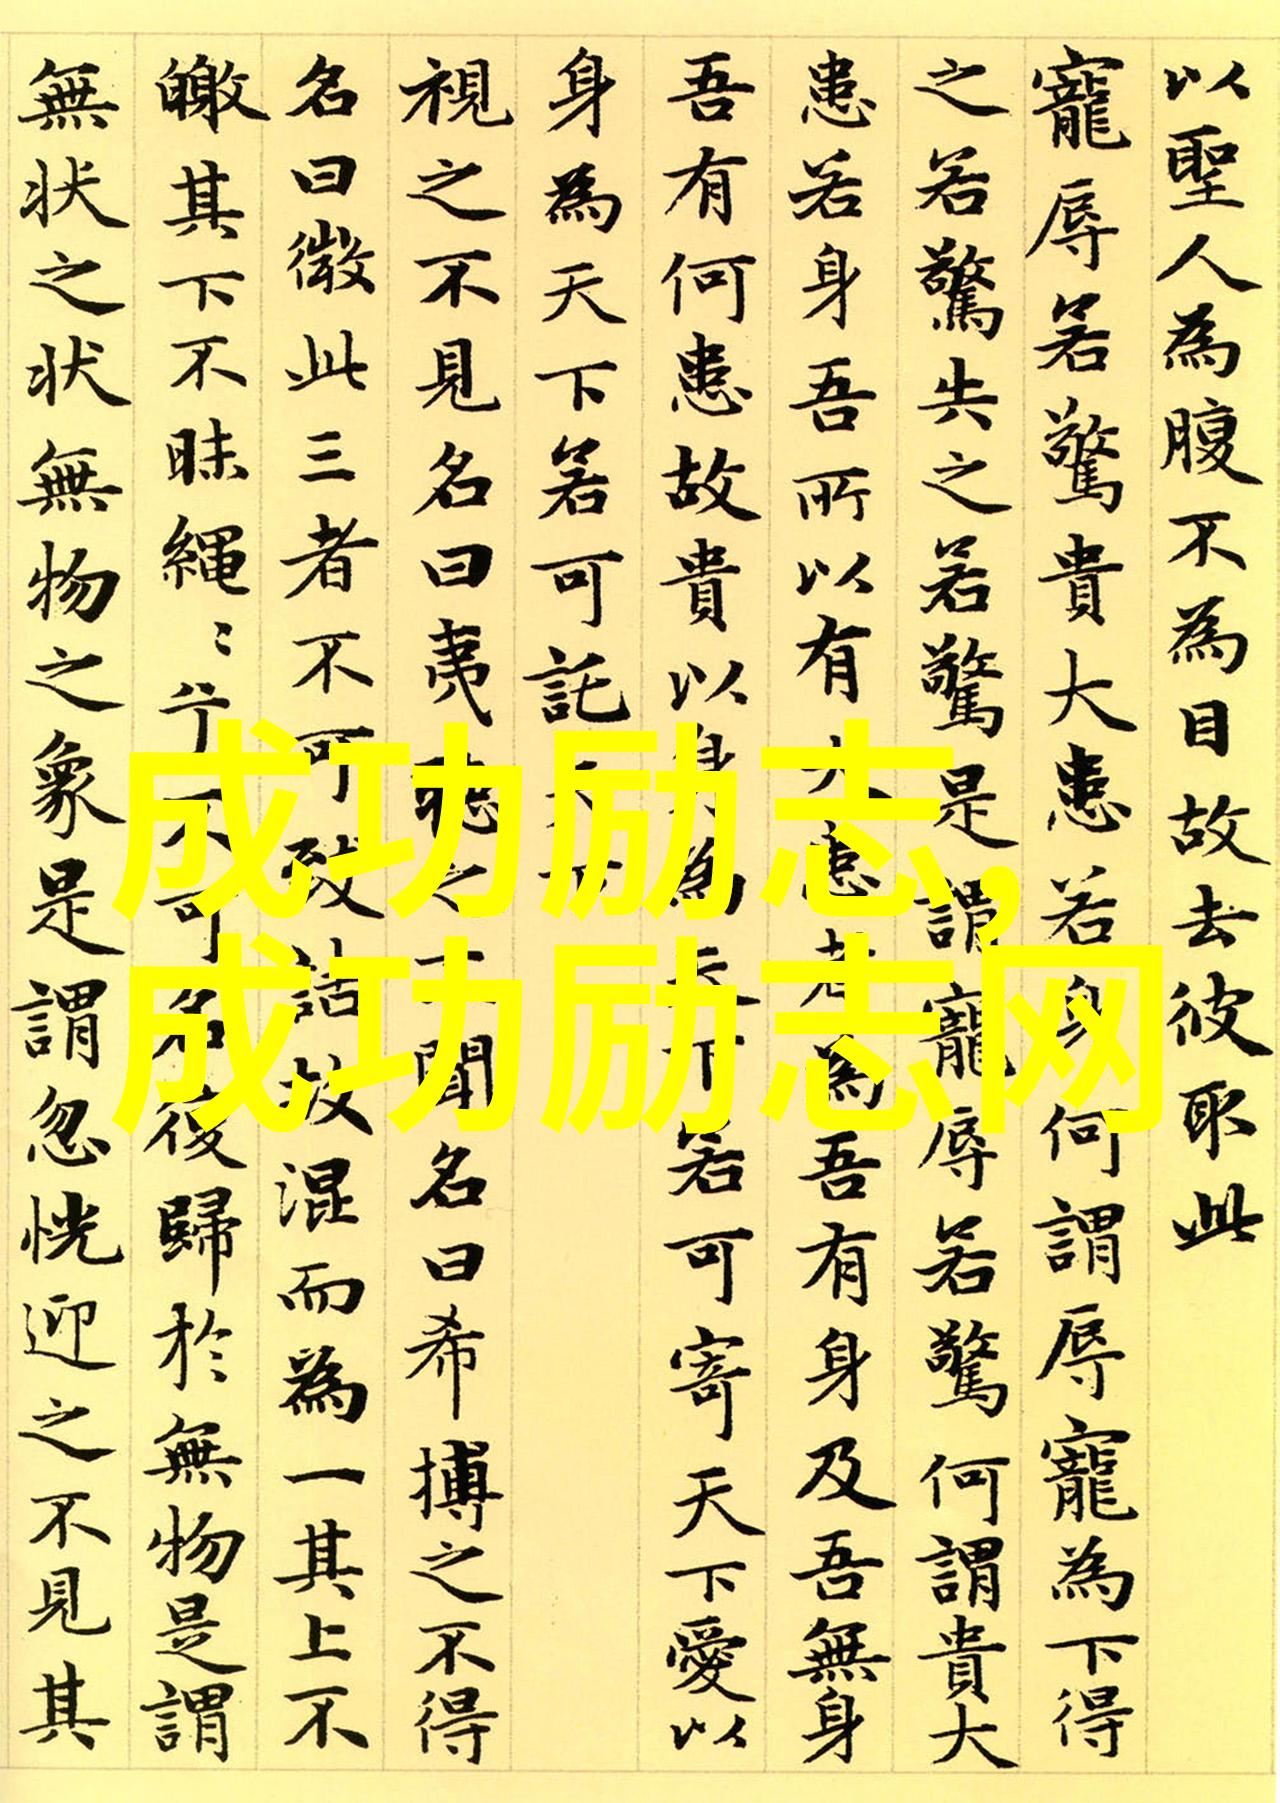 以聖人為腹不為目故去彼取此
寵辱若驚貴大患若身何謂辱寵為下得
之若驚失之若驚是謂寵辱若驚何謂貴大
患若身吾所以有大患者為吾有身及吾無身
吾有何患故貴以身為天下若可寄天下愛以
身為天下若可託天下
視之不見名曰夷聽之不聞名曰希搏之不得
名曰微此三者不可致詰故混而為一其上不
皦其下不昧繩〻兮不可名復歸於無物是謂
無状之状無物之象是謂忽恍迎之不見其
成功励志,
成功励志网